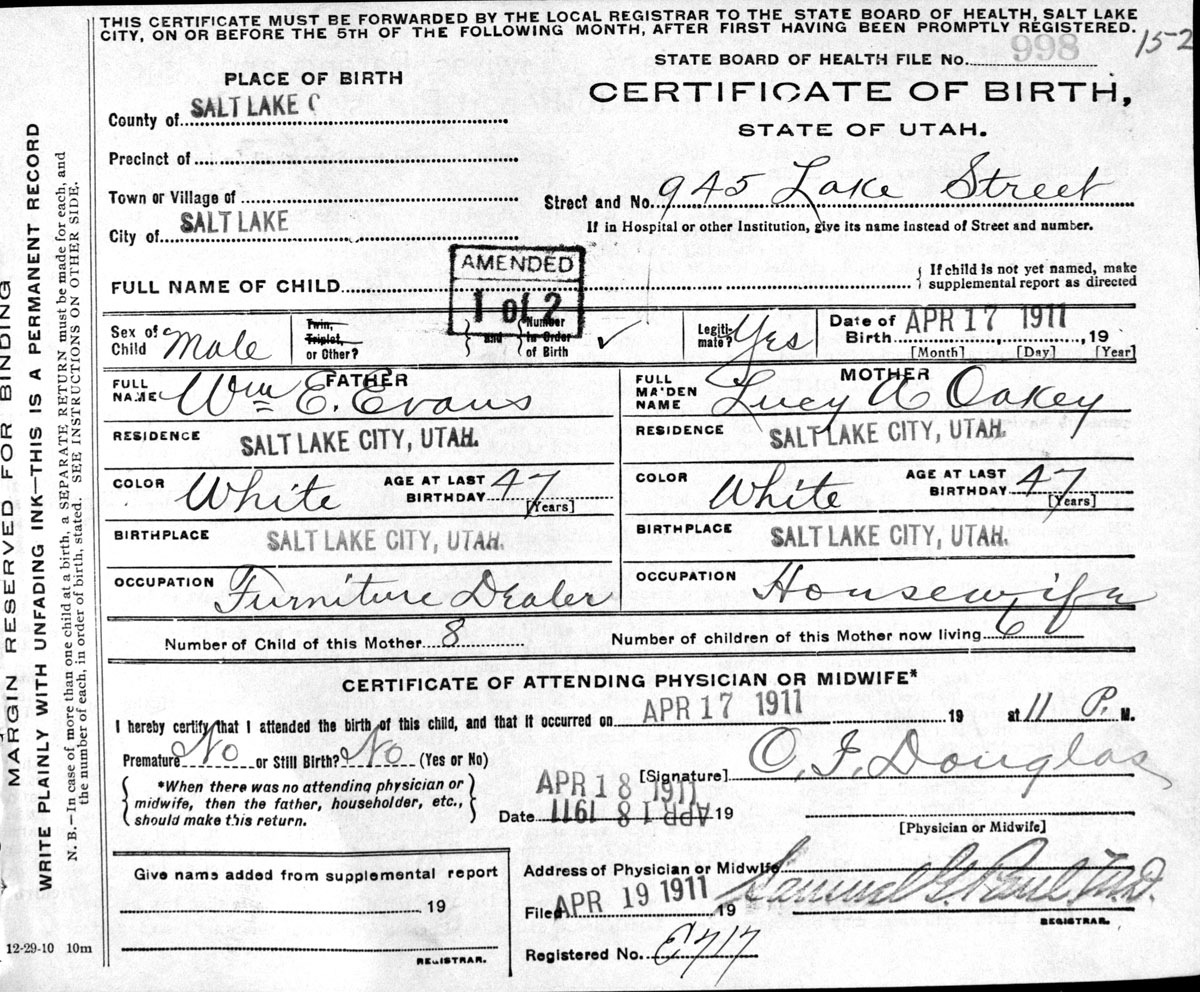 THIS CERTIFICATE MUST BE FORWARDED BY THE LOCAL REGISTRAR TO THE STATE BOARD OF HEALTH, SALT LAKE
CITY, ON OR BEFORE THE 5TH OF THE FOLLOWING MONTH, AFTER FIRST HAVING BEEN PROMPTLY REGISTERED.
152
STATE BOARD OF HEALTH FILE No. 998
PLACE OF BIRTH
CERTIFICATE OF BIRTH,
STATE OF UTAH.
County of SALT LAKE C
Precinct of
Town or Village of
Street and No. 945 Lake Street
City of SALT LAKE
If in Hospital or other Institution, give its name instead of Street and number.
AMENDED
1 of 2
FULL NAME OF CHILD
If child is not yet named, make
supplemental report as directed
Sex of Child Male
Twin, Triplet, or Other?
and
Number in Order of Birth ✓
Legitimate? Yes
Date of Birth APR 17 1911, 19
[Month] [Day] [Year]
FATHER
FULL NAME Wm E. Evans
RESIDENCE SALT LAKE CITY, UTAH.
COLOR White
AGE AT LAST BIRTHDAY 47
[Years]
BIRTHPLACE SALT LAKE CITY, UTAH.
OCCUPATION Furniture Dealer
MOTHER
FULL MAIDEN NAME Lucy A Oakey
RESIDENCE SALT LAKE CITY, UTAH.
COLOR White
AGE AT LAST BIRTHDAY 47
[Years]
BIRTHPLACE SALT LAKE CITY, UTAH.
OCCUPATION Housewife
Number of Child of this Mother 8
Number of children of this Mother now living 6
CERTIFICATE OF ATTENDING PHYSICIAN OR MIDWIFE*
I hereby certify that I attended the birth of this child, and that it occurred on APR 17 1911 19 at 11 P. M.
Premature No or Still Birth? No (Yes or No)
*When there was no attending physician or
midwife, then the father, householder, etc.,
should make this return.
[Signature] O. F. Douglas
Date APR 18 1911 APR 18 1911 19
[Physician or Midwife]
Give name added from supplemental report
19
REGISTRAR.
Address of Physician or Midwife
Filed APR 19 1911 19
Samuel G. Paul M.D.
REGISTRAR.
Registered No. E717
12-29-10 10m
MARGIN RESERVED FOR BINDING
WRITE PLAINLY WITH UNFADING INK—THIS IS A PERMANENT RECORD
N. B.—In case of more than one child at a birth, a SEPARATE RETURN must be made for each, and
the number of each, in order of birth, stated. SEE INSTRUCTIONS ON OTHER SIDE.